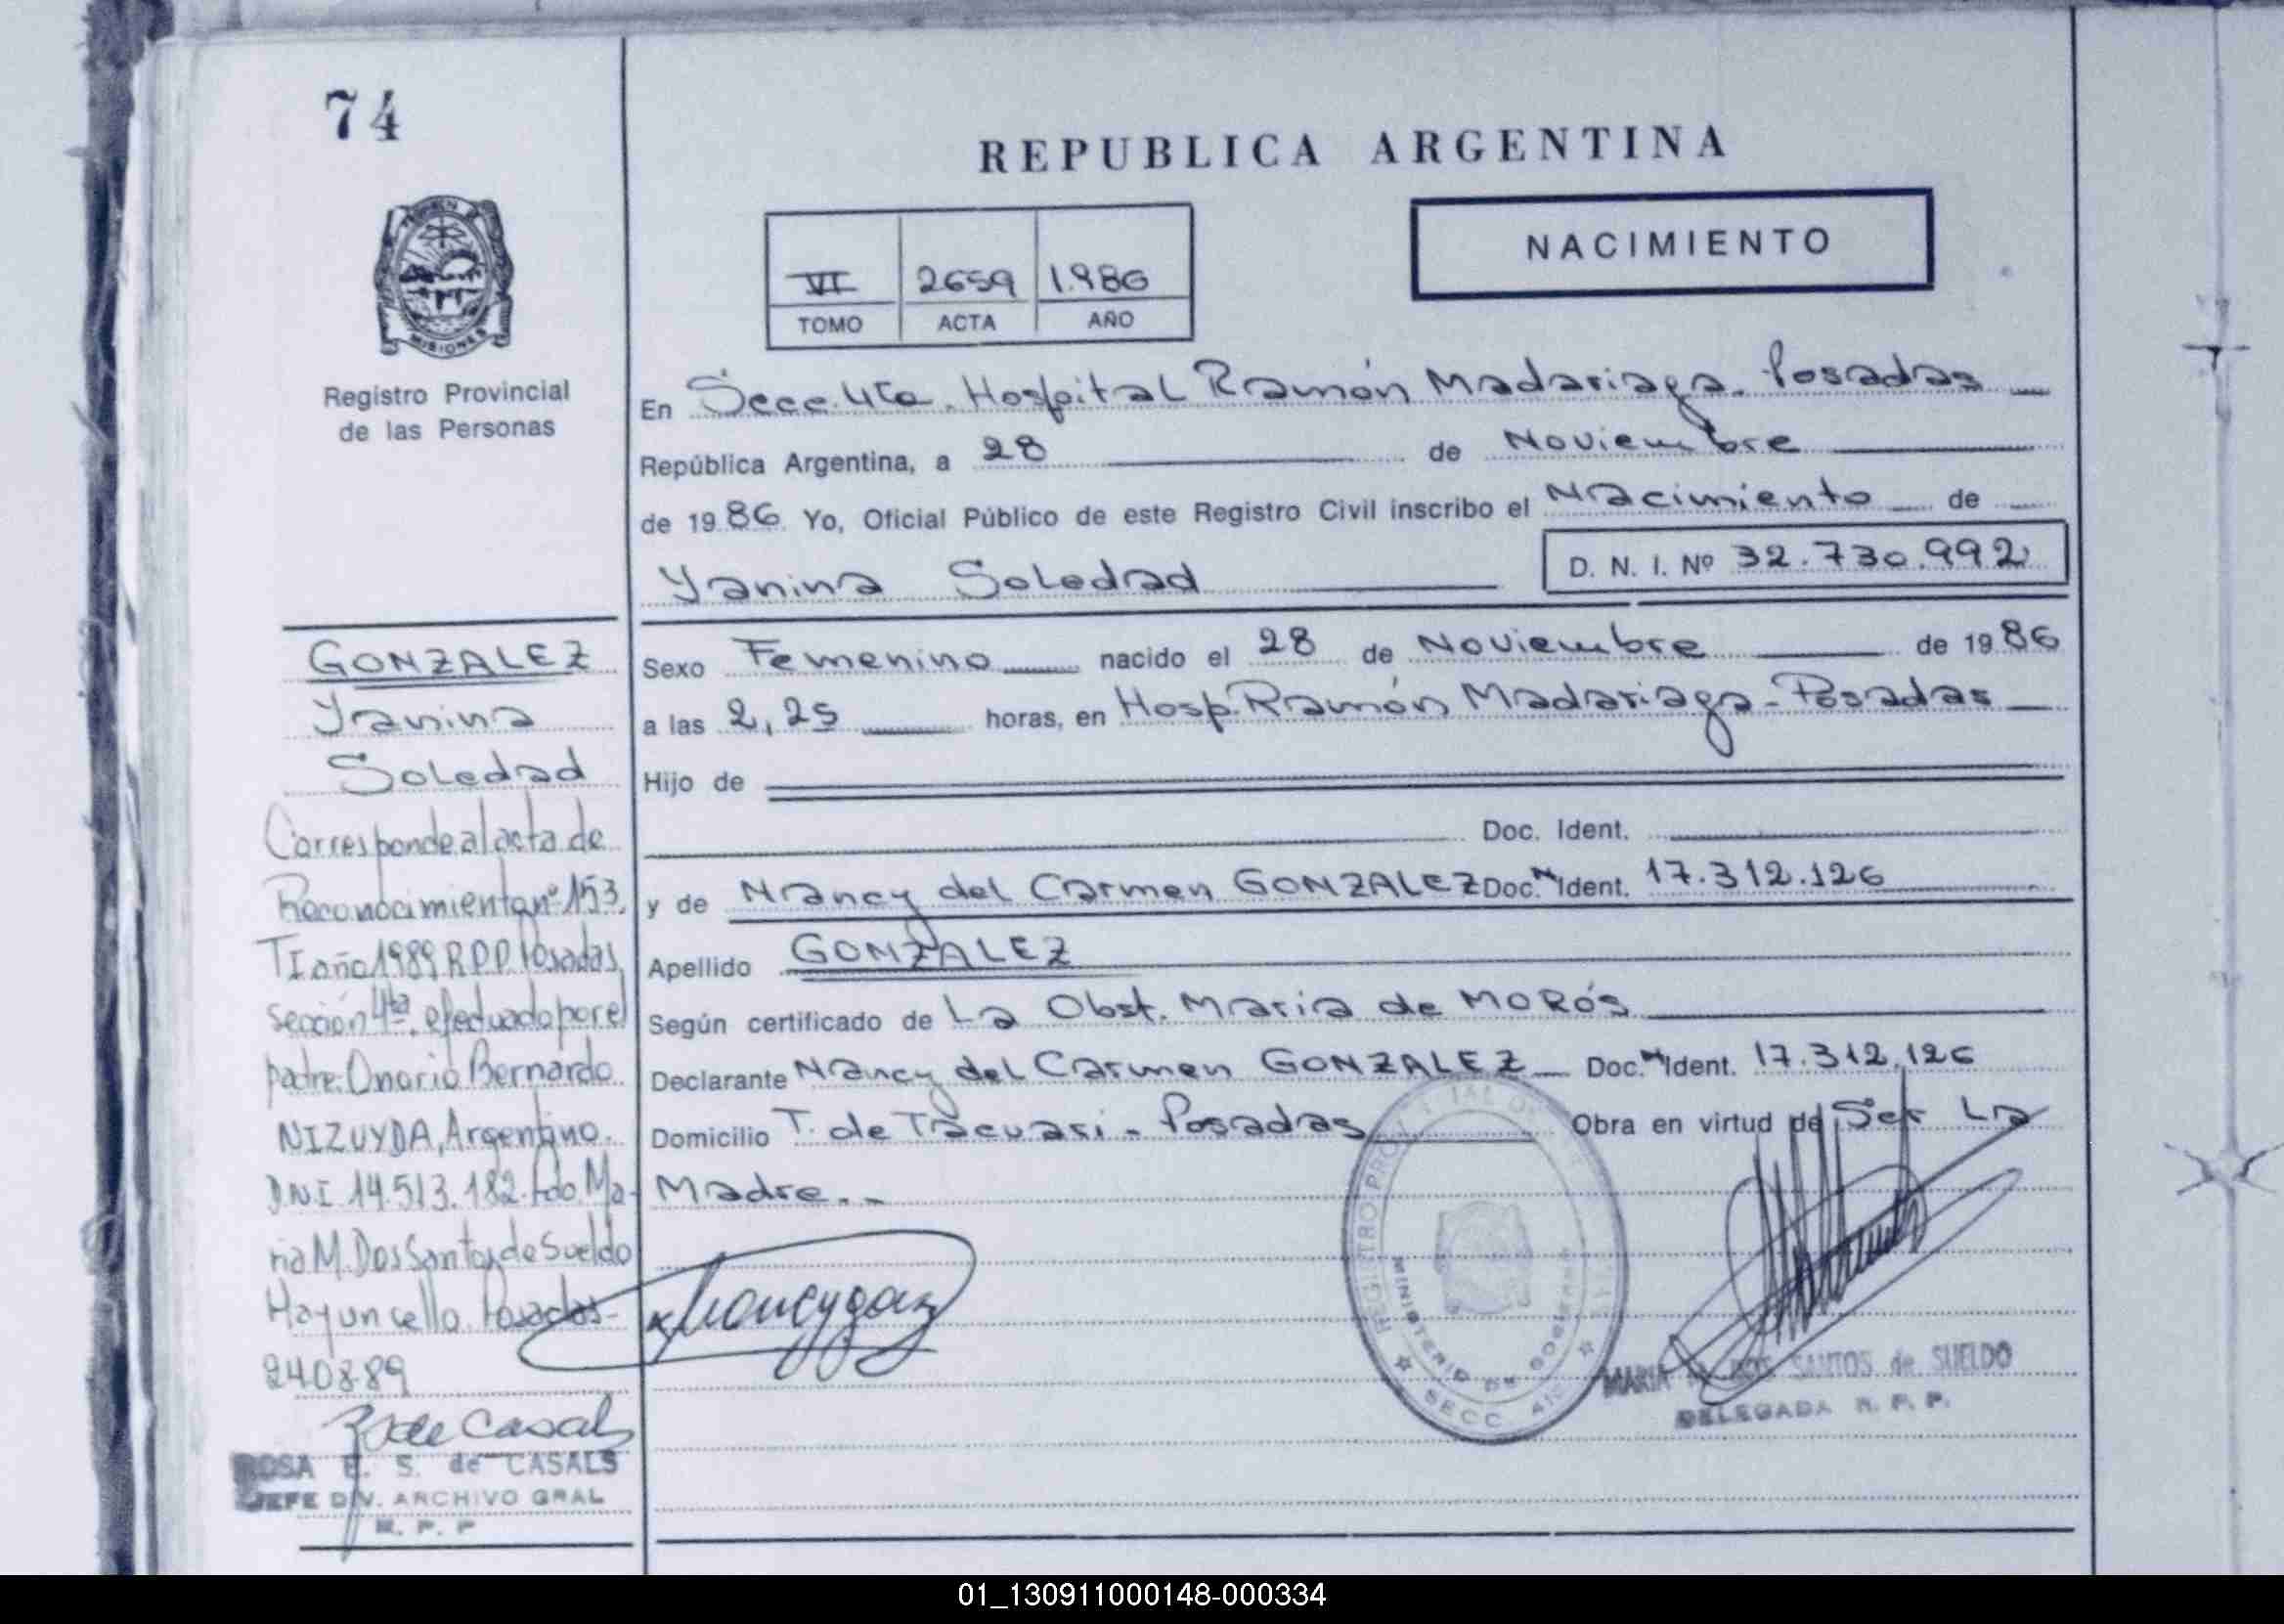 74
REPUBLICA ARGENTINA
VI 2659 1.986
TOMO ACTA AÑO
NACIMIENTO
MISIONES
Registro Provincial
de las Personas
En Secc. 4ta. Hospital Ramón Madariaga - Posadas
República Argentina, a 28 de Noviembre
de 1986 Yo, Oficial Público de este Registro Civil inscribo el Nacimiento de
Yanina Soledad D. N. I. Nº 32.730.992
Sexo Femenino nacido el 28 de Noviembre de 1986
a las 2,25 horas, en Hosp. Ramón Madariaga - Posadas
Hijo de
Doc. Ident.
y de Nancy del Carmen GONZALEZ Doc. N Ident. 17.312.126
Apellido GONZALEZ
Según certificado de La Obst. Maria de MORÓS
Declarante Nancy del Carmen GONZALEZ Doc. N Ident. 17.312.126
Domicilio T. de Tacuari - Posadas Obra en virtud de Ser La
Madre.-
GONZALEZ
Yanina
Soledad
Corresponde al acta de
Reconocimiento nº 153,
T I año 1989 R.P.P. Posadas
sección 4ta. efectuado por el
padre: Onorio Bernardo
NIZUYDA, Argentino.
D.N.I 14.513.182. Fdo. Ma-
ria M. Dos Santos de Sueldo
Hay un sello. Posadas-
24.08.89
R de Casals
ROSA E. S. de CASALS
JEFE DIV. ARCHIVO GRAL
R. P. P
Nancy gonz
MINISTERIO DE GOBIERNO
SECC. 4ta
MARIA M. DOS SANTOS de SUELDO
DELEGADA R. P. P.
01_130911000148-000334